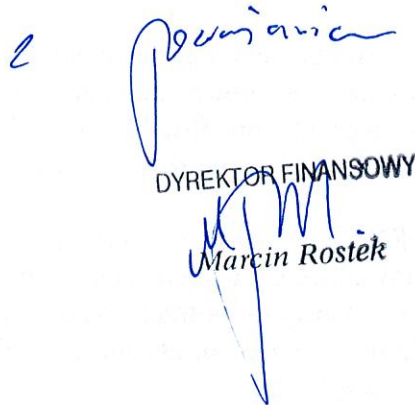 z poważaniem
DYREKTOR FINANSOWY
Marcin Rostek